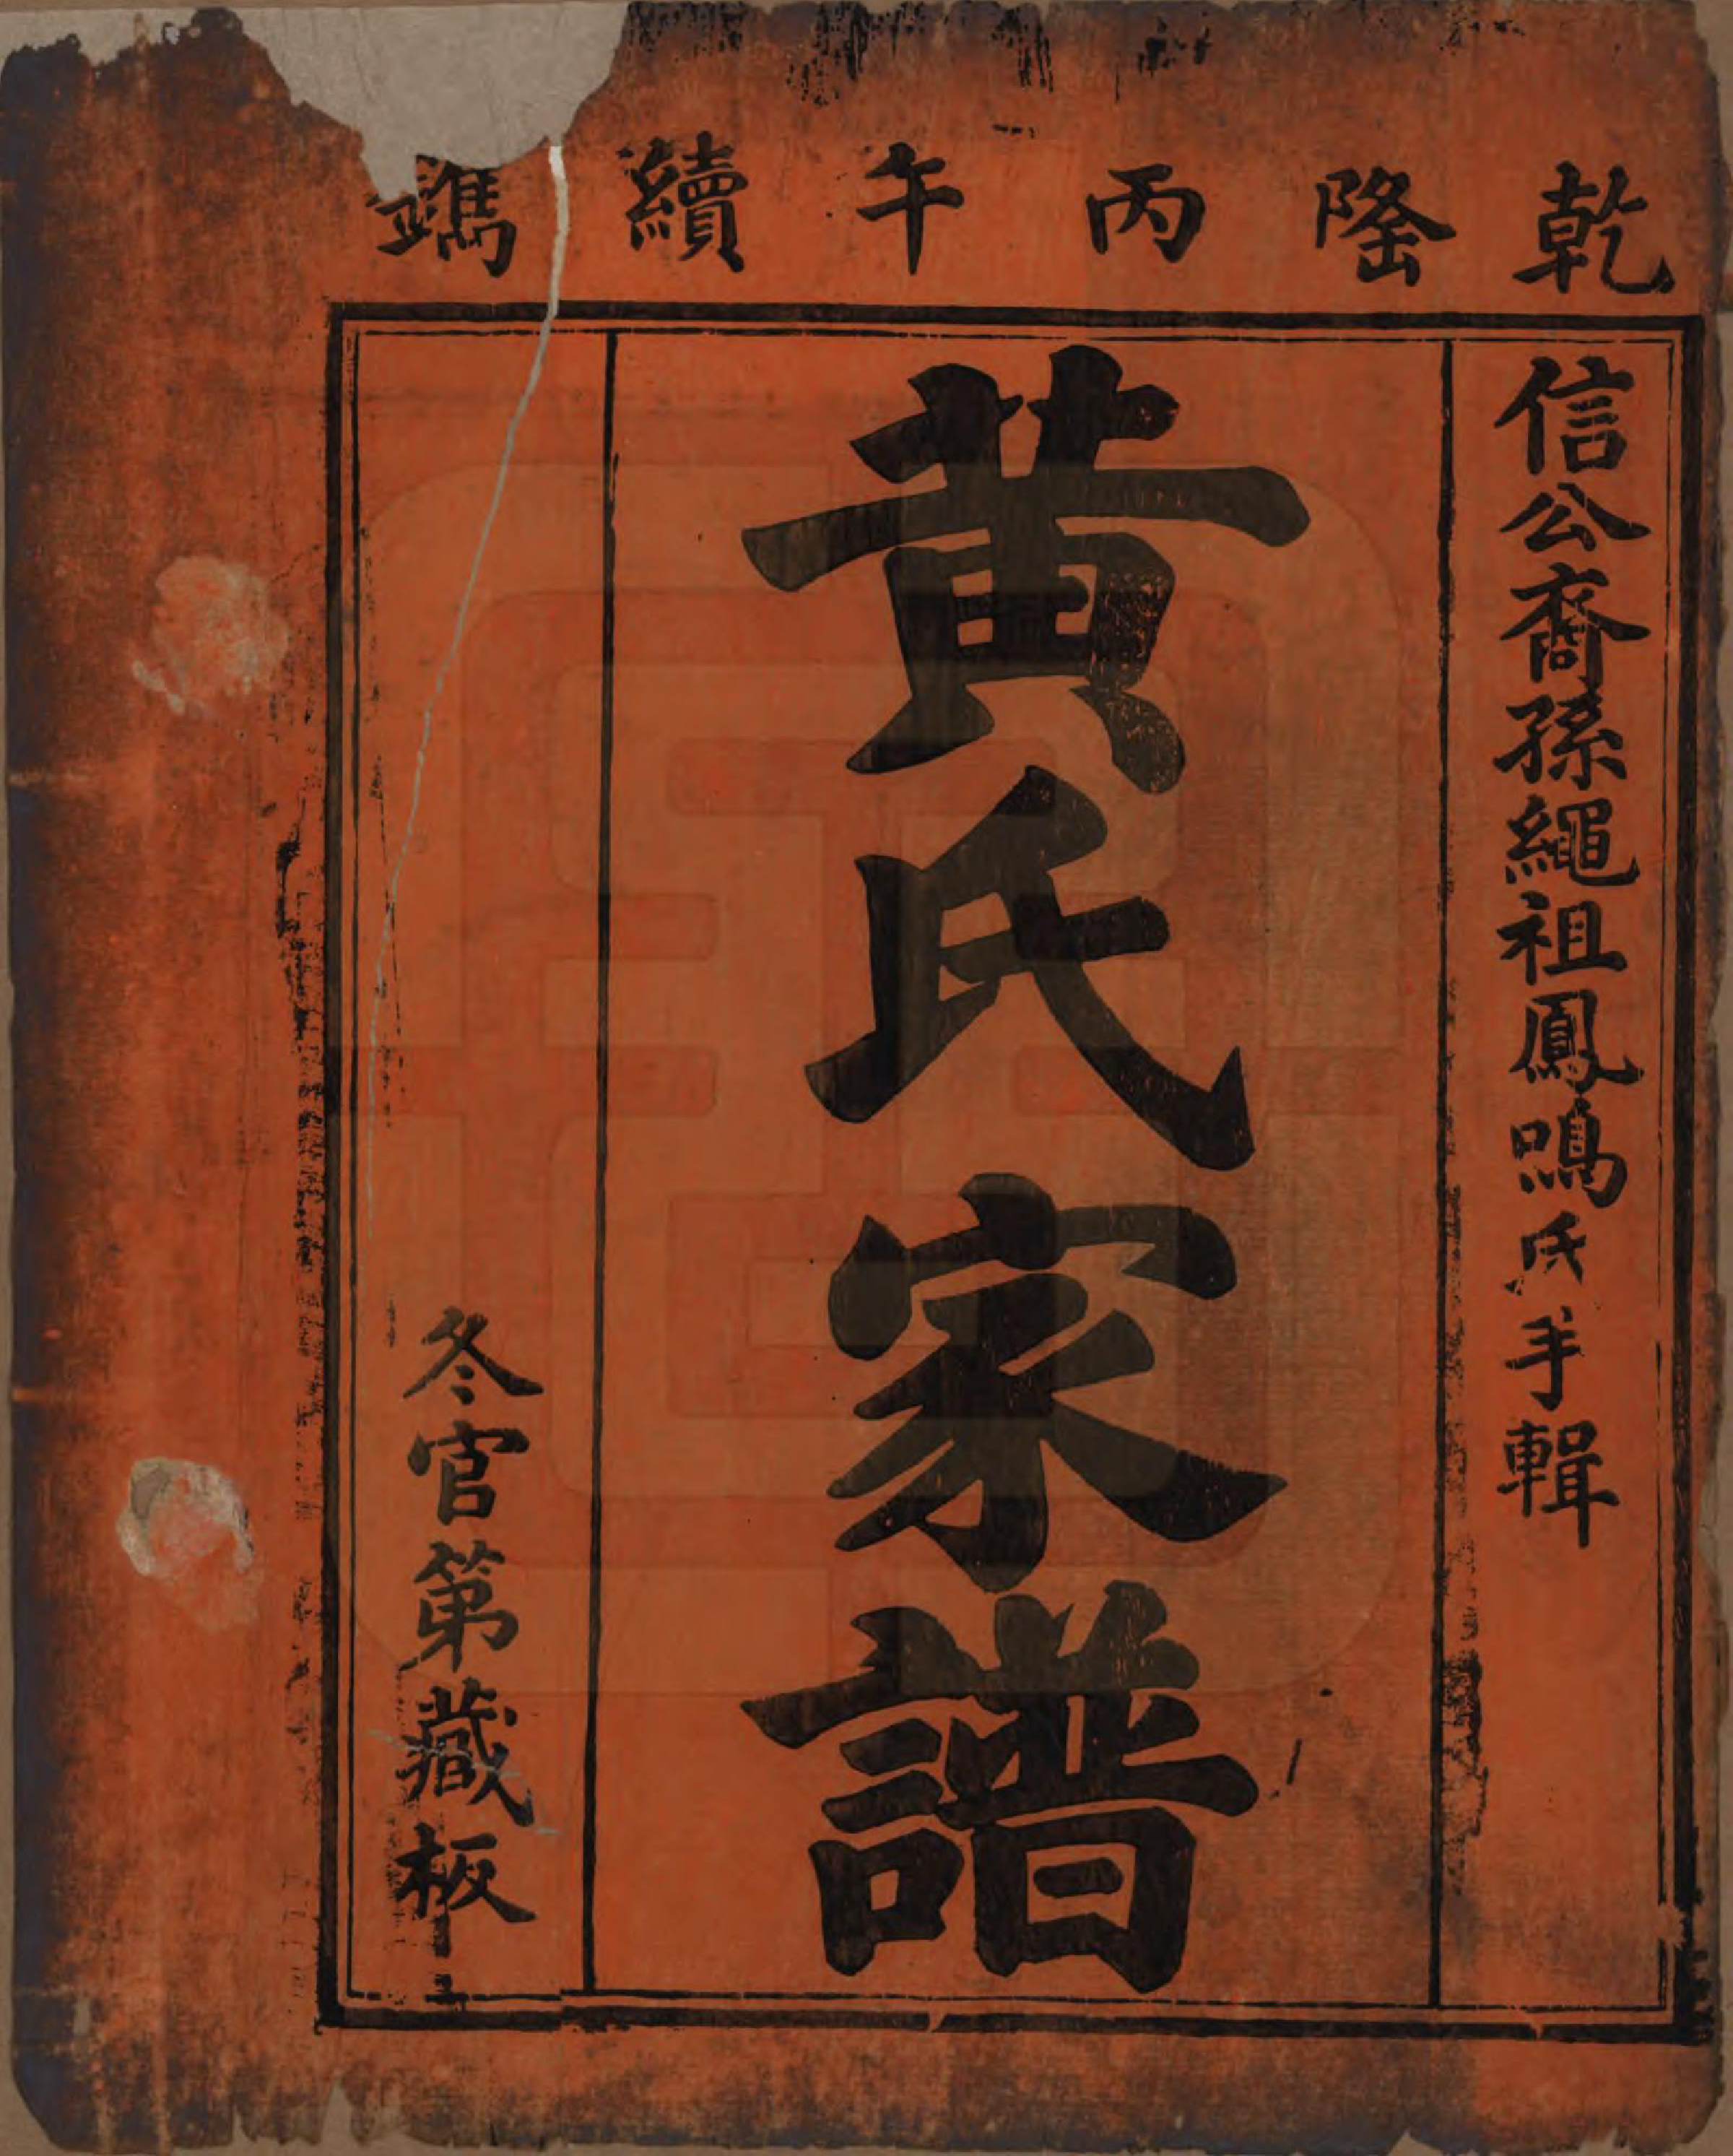 乾隆丙午續鐫
信公裔孫繩祖鳳鳴氏手輯
黄氏家譜
冬官第藏板